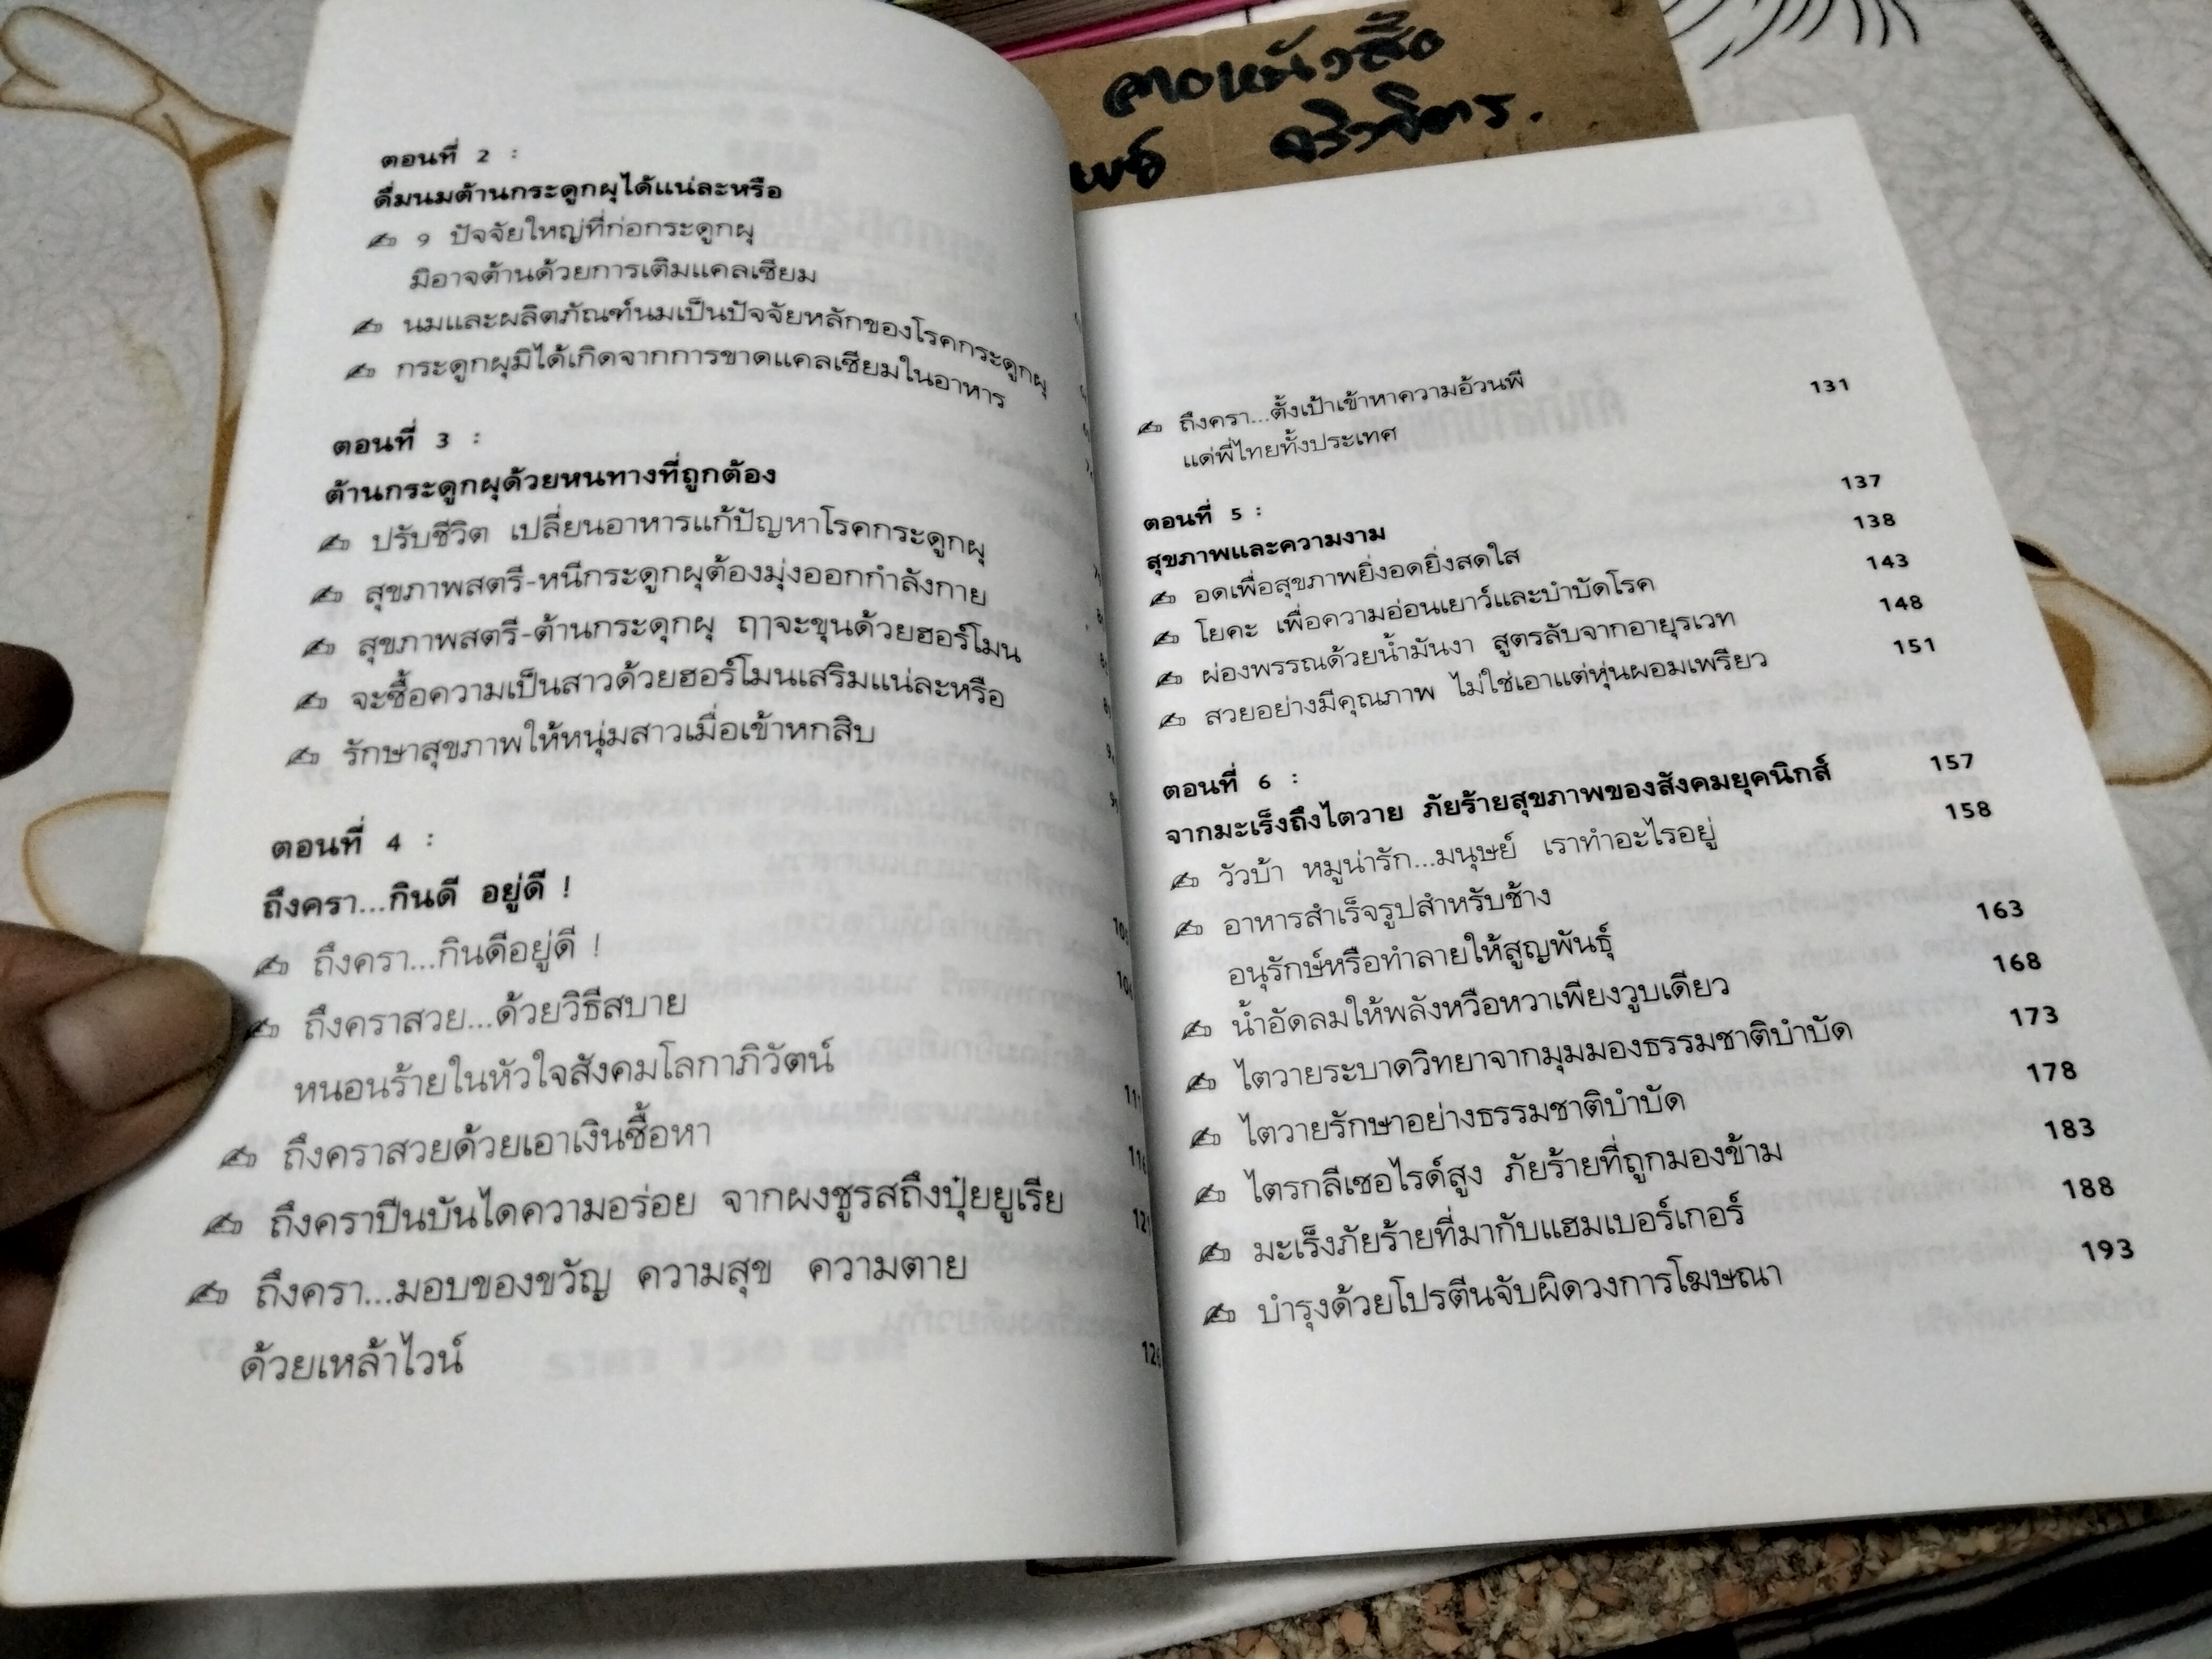 ตอนที่ 2 :
ดื่มนมต้านกระดูกผุได้แน่ละหรือ
9 ปัจจัยใหญ่ที่ก่อกระดูกผุ
มิอาจต้านด้วยการเติมแคลเซียม
นมและผลิตภัณฑ์นมเป็นปัจจัยหลักของโรคกระดูกผุ
กระดูกผุมิได้เกิดจากการขาดแคลเซียมในอาหาร
ตอนที่ 3 :
ต้านกระดูกผุด้วยหนทางที่ถูกต้อง
ปรับชีวิต เปลี่ยนอาหารแก้ปัญหาโรคกระดูกผุ
สุขภาพสตรี-หนีกระดูกผุต้องมุ่งออกกำลังกาย
สุขภาพสตรี-ต้านกระดุกผุ ฤๅจะขุนด้วยฮอร์โมน
จะซื้อความเป็นสาวด้วยฮอร์โมนเสริมแน่ละหรือ
รักษาสุขภาพให้หนุ่มสาวเมื่อเข้าหกสิบ
ตอนที่ 4 :
ถึงครา...กินดี อยู่ดี !
ถึงครา...กินดีอยู่ดี !
ถึงคราสวย...ด้วยวิธีสบาย
หนอนร้ายในหัวใจสังคมโลกาภิวัตน์
ถึงคราสวยด้วยเอาเงินซื้อหา
ถึงคราปีนบันไดความอร่อย จากผงชูรสถึงปุ๋ยยูเรีย
ถึงครา...มอบของขวัญ ความสุข ความตาย
ด้วยเหล้าไวน์
ถึงครา...ตั้งเป้าเข้าหาความอ้วนพี 131
แด่พี่ไทยทั้งประเทศ
ตอนที่ 5 : 137
สุขภาพและความงาม 138
อดเพื่อสุขภาพยิ่งอดยิ่งสดใส 143
โยคะ เพื่อความอ่อนเยาว์และบำบัดโรค 148
ผ่องพรรณด้วยน้ำมันงา สูตรลับจากอายุรเวท 151
สวยอย่างมีคุณภาพ ไม่ใช่เอาแต่หุ่นผอมเพรียว
ตอนที่ 6 :
จากมะเร็งถึงไตวาย ภัยร้ายสุขภาพของสังคมยุคนิกส์ 157
วัวบ้า หมูน่ารัก...มนุษย์ เราทำอะไรอยู่ 158
อาหารสำเร็จรูปสำหรับช้าง
อนุรักษ์หรือทำลายให้สูญพันธุ์ 163
น้ำอัดลมให้พลังหวือหวาเพียงวูบเดียว 168
ไตวายระบาดวิทยาจากมุมมองธรรมชาติบำบัด 173
ไตวายรักษาอย่างธรรมชาติบำบัด 178
ไตรกลีเซอไรด์สูง ภัยร้ายที่ถูกมองข้าม 183
มะเร็งภัยร้ายที่มากับแฮมเบอร์เกอร์ 188
บำรุงด้วยโปรตีนจับผิดวงการโฆษณา 193